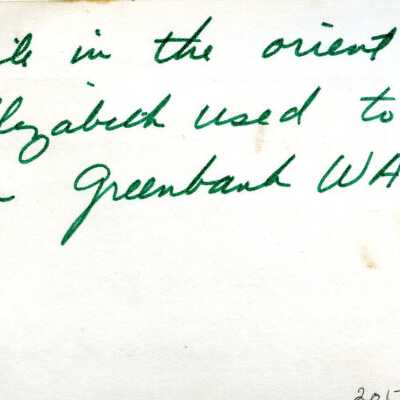 in the orient
Elizabeth used to
Greenbank WA
201